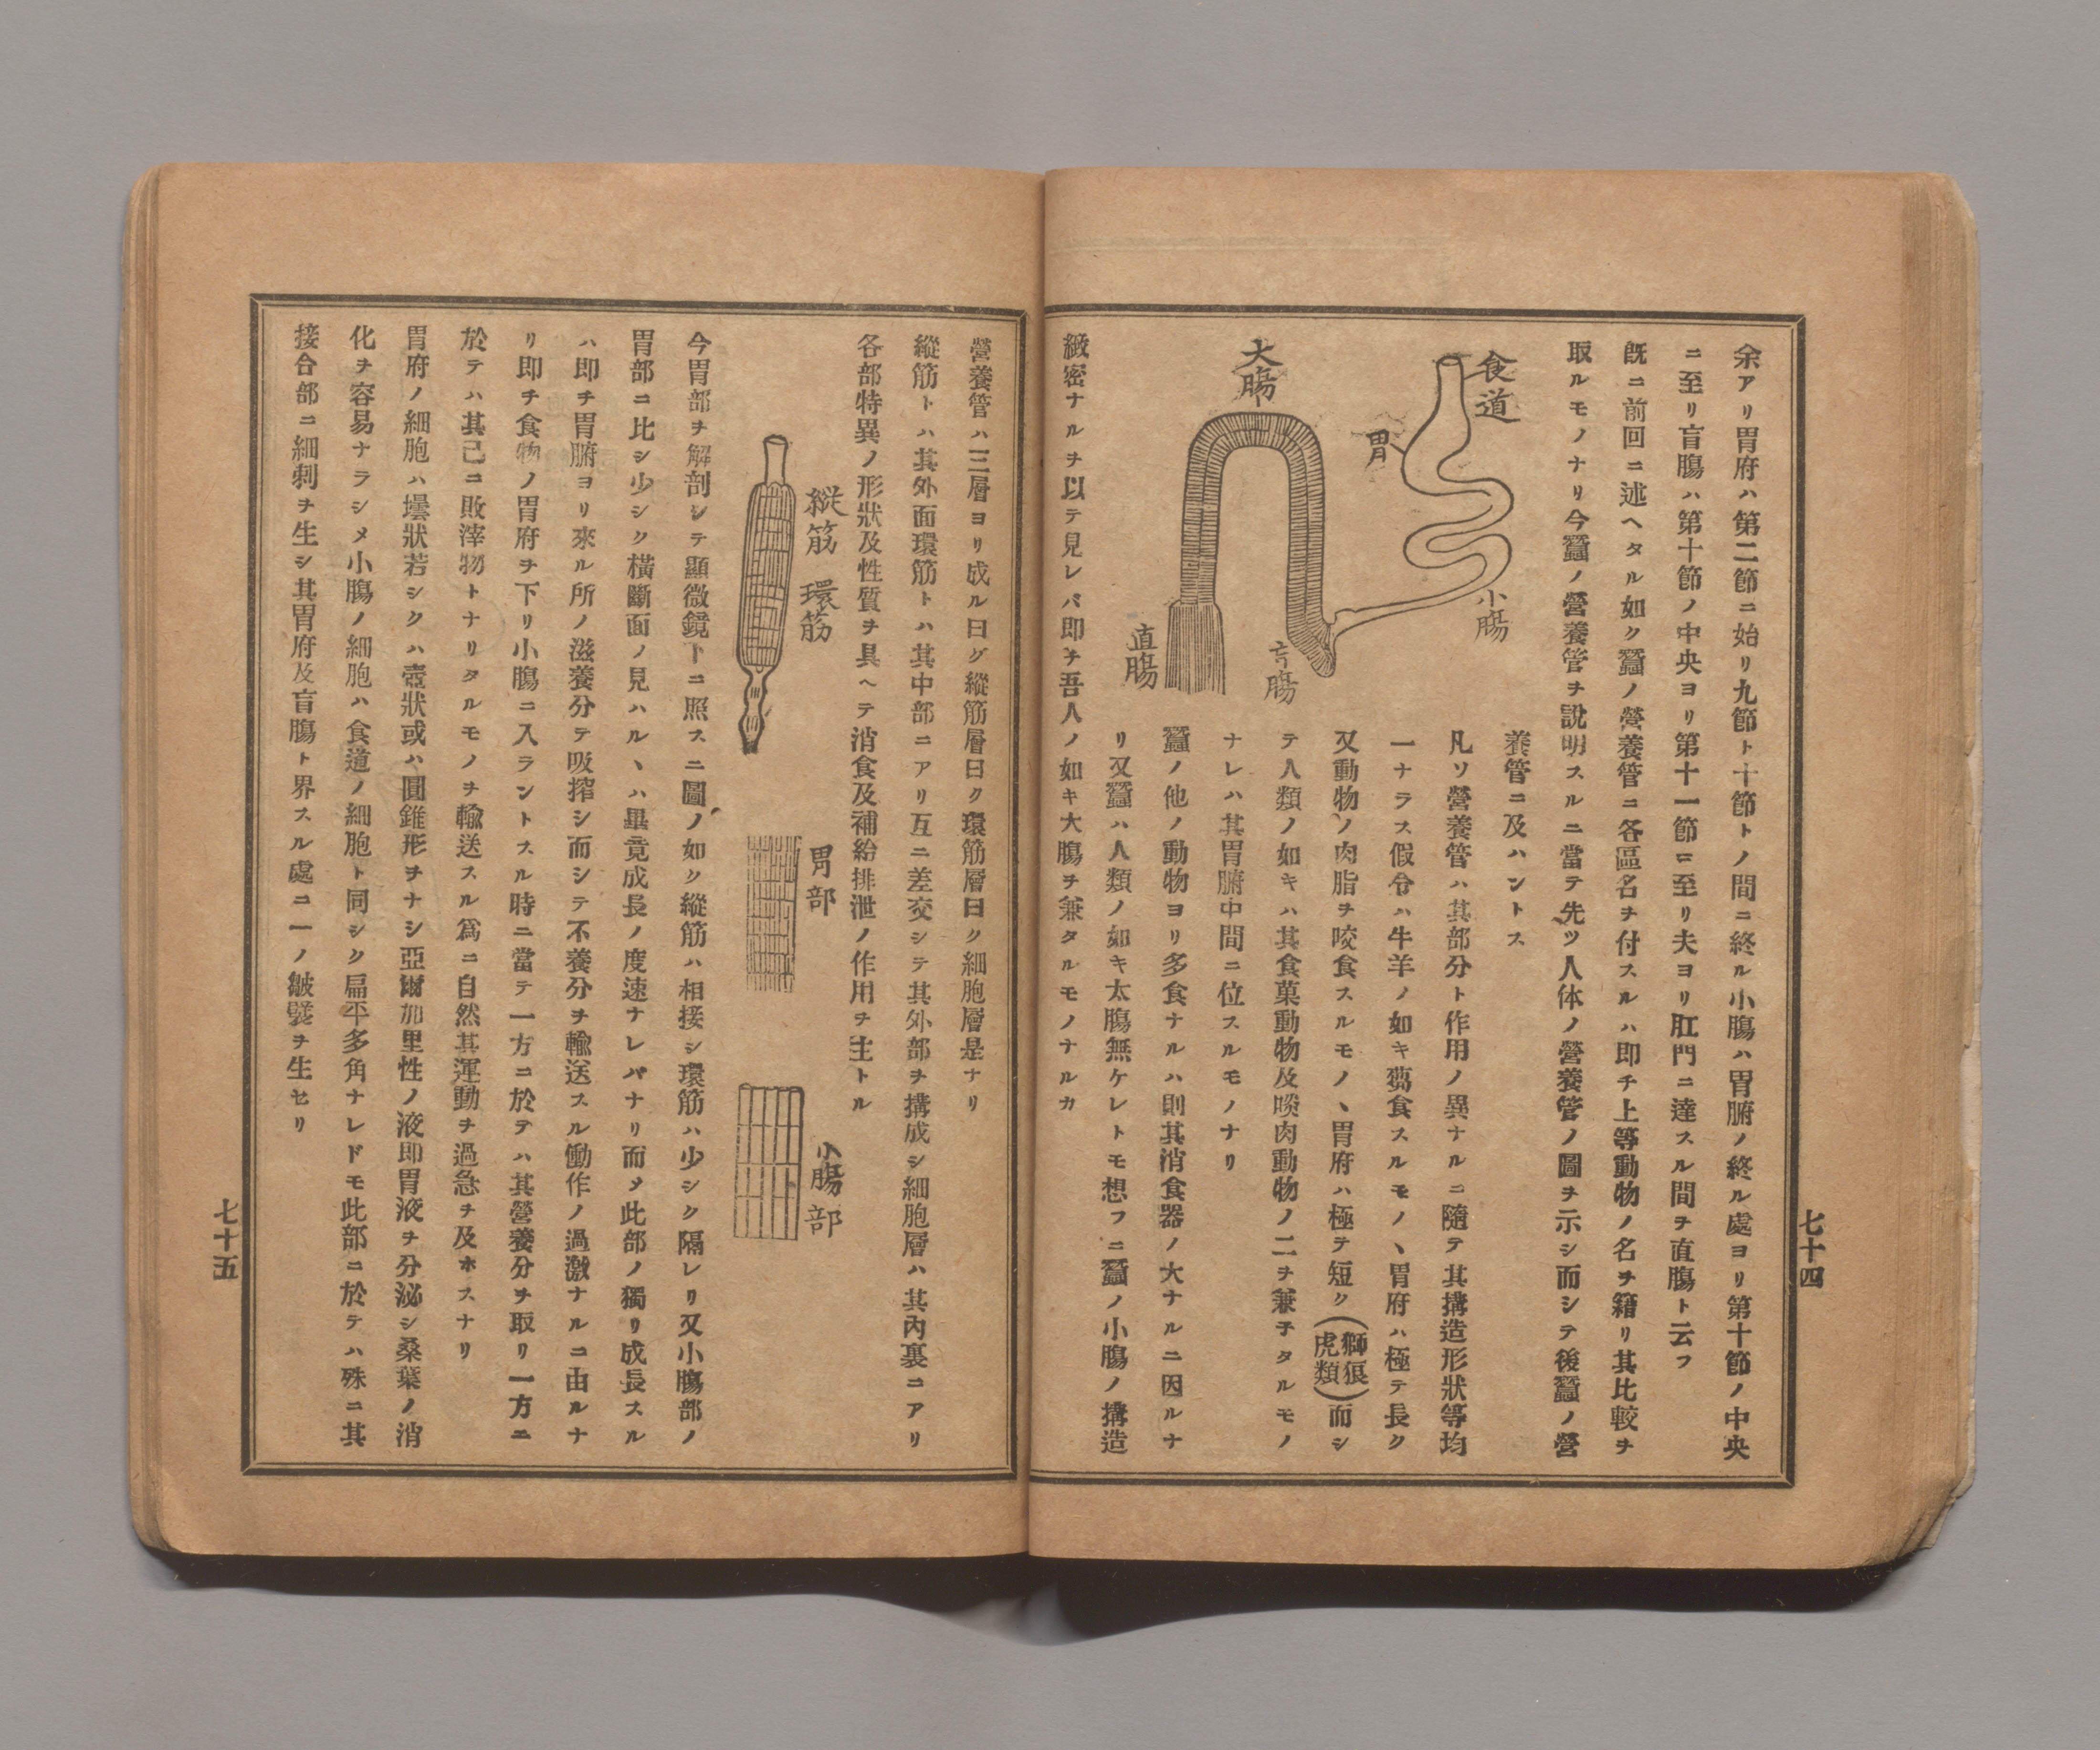 余アリ胃府ハ第二節ニ始リ九節ト十節トノ間ニ終ル小膓ハ胃腑ノ終ル處ヨリ第十節ノ中央
ニ至リ盲膓ハ第十節ノ中央ヨリ第十一節ニ至リ夫ヨリ肛門ニ達スル間ヲ直膓ト云フ
既ニ前回ニ述ヘタル如ク蠶ノ營養管ニ各區名ヲ付スルハ即チ上等動物ノ名ヲ籍リ其比較ヲ
取ルモノナリ今蠶ノ營養管ヲ說明スルニ當テ先ツ人体ノ營養管ノ圖ヲ示シ而シテ後蠶ノ營
養管ニ及ハントス
食道
胃
小膓
大膓
盲膓
直膓
凡ソ營養管ハ其部分ト作用ノ異ナルニ隨テ其搆造形狀等均
一ナラス假令ハ牛羊ノ如キ蒭食スルモノヽ胃府ハ極テ長ク
又動物ノ肉脂ヲ咬食スルモノヽ胃府ハ極テ短ク(獅狼虎類)而シ
テ人類ノ如キハ其食菓動物及啖肉動物ノ二ヲ兼子タルモノ
ナレハ其胃腑中間ニ位スルモノナリ
蠶ノ他ノ動物ヨリ多食ナルハ則其消食器ノ大ナルニ因ルナ
リ又蠶ハ人類ノ如キ太膓無ケレトモ想フニ蠶ノ小膓ノ搆造
緻密ナルヲ以テ見レバ即チ吾人ノ如キ大膓ヲ兼タルモノナルカ
七十四
營養管ハ三層ヨリ成ル曰ク縱筋層曰ク環筋層曰ク細胞層是ナリ
縱筋トハ其外面環筋トハ其中部ニアリ互ニ差交シテ其外部ヲ搆成シ細胞層ハ其內裏ニアリ
各部特異ノ形狀及性質ヲ具ヘテ消食及補給排泄ノ作用ヲ主トル
縱筋 環筋
胃部
小膓部
今胃部ヲ解剖シテ顯微鏡下ニ照スニ圖ノ如ク縱筋ハ相接シ環筋ハ少シク隔レリ又小膓部ノ
胃部ニ比シ少シク橫斷面ノ見ハルヽハ畢竟成長ノ度速ナレバナリ而メ此部ノ獨リ成長スル
ハ即チ胃腑ヨリ來ル所ノ滋養分テ吸搾シ而シテ不養分ヲ輸送スル働作ノ過激ナルニ由ルナ
リ即チ食物ノ胃府ヲ下リ小膓ニ入ラントスル時ニ當テ一方ニ於テハ其營養分ヲ取リ一方ニ
於テハ其己ニ敗滓物トナリタルモノヲ輸送スル爲ニ自然其運動ヲ過急ヲ及ホスナリ
胃府ノ細胞ハ壜狀若シクハ壺狀或ハ圓錐形ヲナシ亞爾加里性ノ液即胃液ヲ分泌シ桑葉ノ消
化ヲ容易ナラシメ小膓ノ細胞ハ食道ノ細胞ト同シク扁平多角ナレドモ此部ニ於テハ殊ニ其
接合部ニ細刺ヲ生シ其胃府及盲膓ト界スル處ニ一ノ皺襞ヲ生セリ
七十五